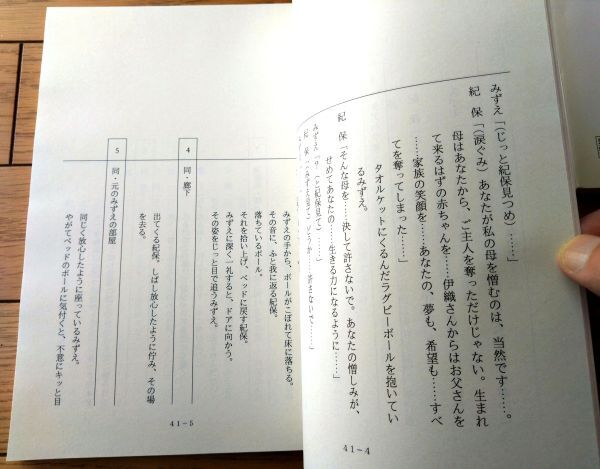 みずえ「(じっと紀保見つめ)……」
紀　保「(涙ぐみ)あなたが私の母を憎むのは、当然です……。
母はあなたから、ご主人を奪っただけじゃない。生まれ
て来るはずの赤ちゃんを……伊織さんからはお父さんを
……家族の笑顔を……あなたの、夢も、希望も……すべ
てを奪ってしまった……」
タオルケットにくるんだラグビーボールを抱いてい
るみずえ。
紀　保「そんな母を……決して許さないで。あなたの憎しみが、
せめてあなたの……生きる力になるように……」
みずえ「？(と紀保見て)……」
紀　保「(みずえ見て)どうか……許さないで……」
41-4
みずえの手から、ボールがこぼれて床に落ちる。
その音に、ふと我に返る紀保。
落ちているボール。
それを拾い上げ、ベッドに戻す紀保。
みずえに深く一礼すると、ドアに向かう。
その姿をじっと目で追うみずえ。
4　同・廊下
出てくる紀保。しばし放心したように佇み、その場
を去る。
5　同・元のみずえの部屋
同じく放心したように座っているみずえ。
やがてベッドのボールに気付くと、不意にキッと目
41-5